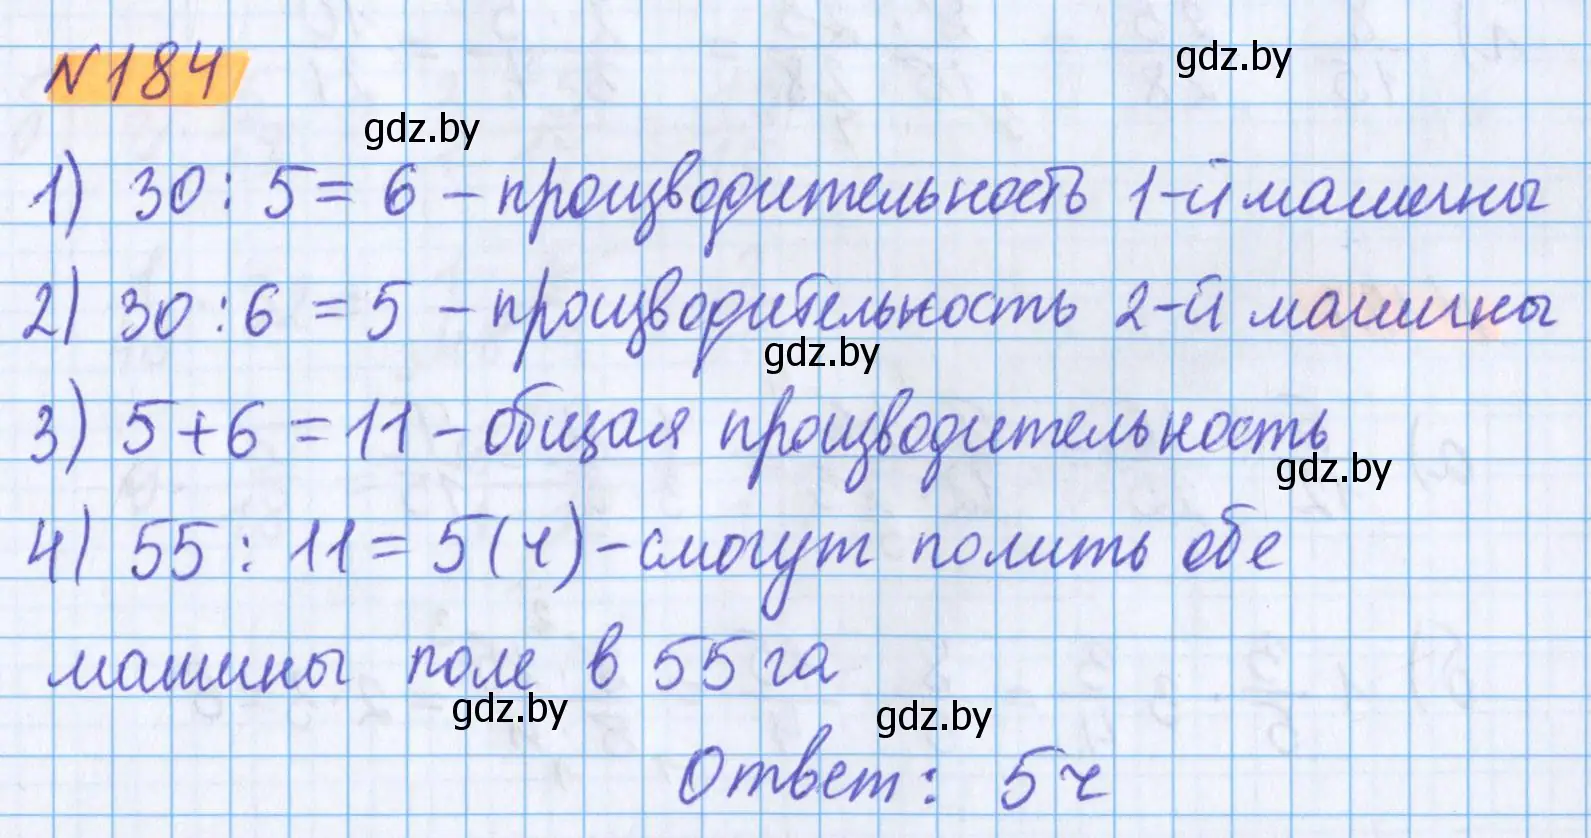 №184
gdz.by
gdz.by
1) 30 : 5 = 6 – производительность 1-й машины
2) 30 : 6 = 5 – производительность 2-й машины
gdz.by
3) 5 + 6 = 11 – общая производительность
gdz.by
4) 55 : 11 = 5 (ч) – смогут полить обе
машины поле в 55 га
gdz.by
gdz.by
Ответ: 5 ч